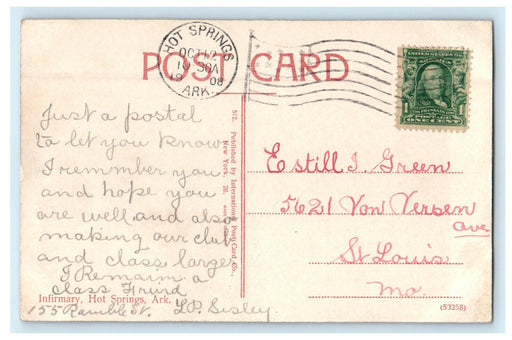 POST CARD
HOT SPRINGS
OCT 12
11 30A
1908
ARK.
1
ONE CENT
Just a postal
to let you know
I remember you
and hope you
are well and also
making our club
and class large
I Remain a
class Friend
L.P. Sisley.
155 Ramble St.
Infirmary, Hot Springs, Ark.
512. Published by International Post Card Co.,
New York.
Estill I. Green
5621 Von Versen
ave
St Louis
Mo.
(53258)